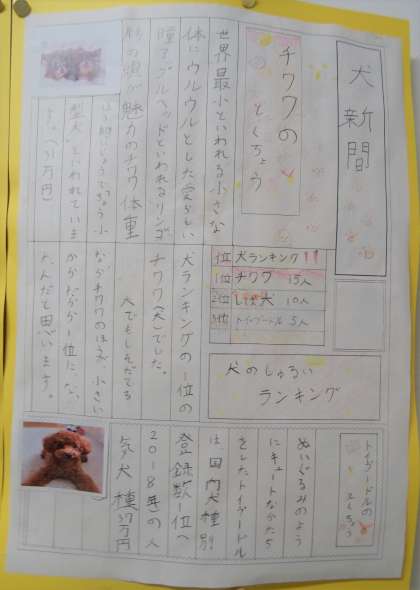 犬新聞
チワワの
とくちょう
世界最小といわれる小さな
体にウルウルとした愛らしい
瞳アップルヘッドといわれるリンゴ
形の頭が魅力のチワワ体重
型犬といわれていま
す。ペ31万円
位 犬ランキング!!
1位 チワワ 15人
2位 しば犬 10人
3位 トイプードル 5人
犬のしゅるい
ランキング
犬ランキングの1位の
チワワ(犬)でした。
犬でもしそだてる
ならチワワのほうが、小さい
からだから一位にな、
たんだと思います。
トイプードルの
とくちょう
ぬいぐるみのよう
にキュートなかたち
をしたトイプードル
は国内犬種別
登録数1位へ
2018年)の人
気犬種37万円